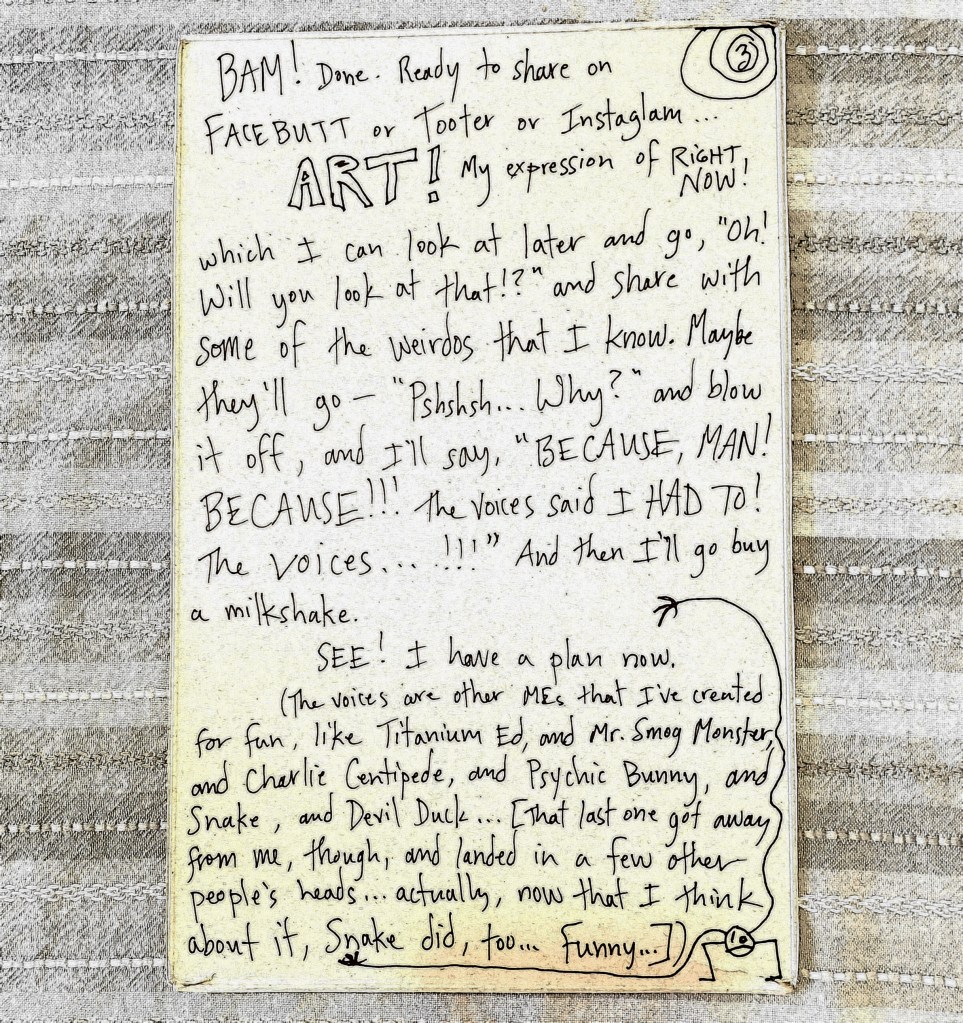 3
BAM! Done. Ready to share on
FACEBUTT or Tooter or Instaglam...
ART! My expression of RIGHT NOW!
which I can look at later and go, "Oh!
Will you look at that!?" and share with
some of the weirdos that I know. Maybe
they'll go — "Pshshsh... Why?" and blow
it off, and I'll say, "BECAUSE, MAN!
BECAUSE!!! The voices said I HAD TO!
The voices... !!!" And then I'll go buy
a milkshake.
SEE! I have a plan now.
(The voices are other MEs that I've created
for fun, like Titanium Ed, and Mr. Smog Monster,
and Charlie Centipede, and Psychic Bunny, and
Snake, and Devil Duck... [That last one got away
from me, though, and landed in a few other
people's heads... actually, now that I think
about it, Snake did, too... Funny...])